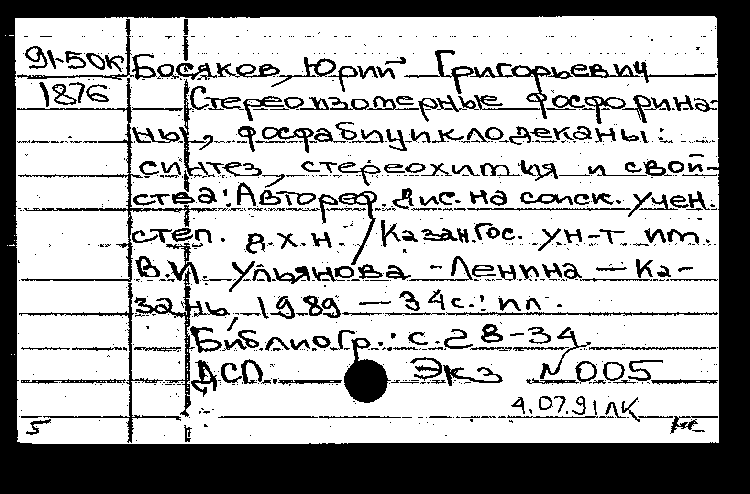 91-50К Босяков, Юрий Григорьевич
1876 Стереоизомерные фосфорина-
ны, фосфабициклодеканы:
синтез, стереохимия и свой-
ства: Автореф. дис. на соиск. учен.
степ. д.х.н. / Казан. гос. ун-т им.
В.И. Ульянова - Ленина — Ка-
зань, 1989. — 34 с.: ил.
Библиогр.: с. 28-34.
ДСП. Экз №005
4.07.91 ЛК
5